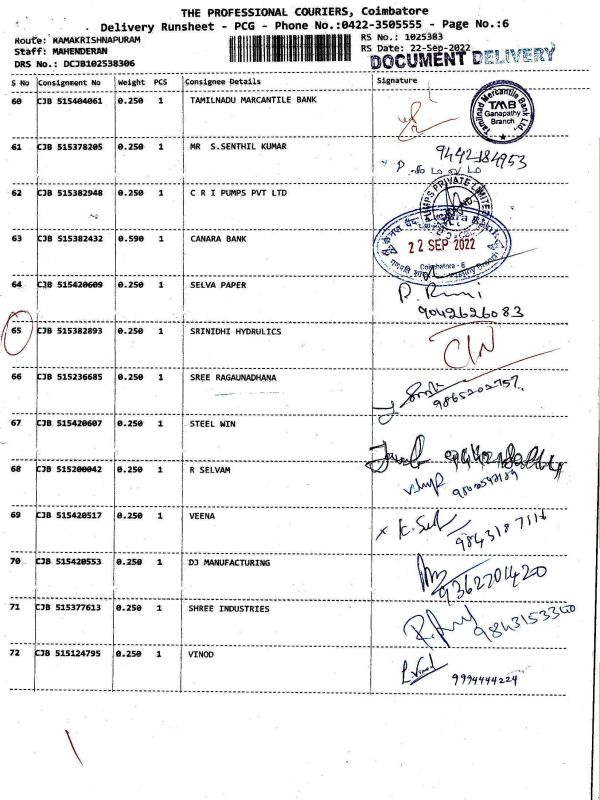 THE PROFESSIONAL COURIERS, Coimbatore
Delivery Runsheet - PCG - Phone No.:0422-3505555 - Page No.:6
Route: RAMAKRISHNAPURAM
RS No.: 1025383
Staff: MAHENDERAN
RS Date: 22-Sep-2022
DRS No.: DCJB102538306
DOCUMENT DELIVERY
S No Consignment No Weight PCS Consignee Details Signature
60 CJB 515404061 0.250 1 TAMILNADU MARCANTILE BANK
Tamilnad Mercantile Bank Ltd.
TMB
Ganapathy
Branch
61 CJB 515378205 0.250 1 MR S.SENTHIL KUMAR 9442184953
62 CJB 515382948 0.250 1 C R I PUMPS PVT LTD
PUMPS PRIVATE LIMITED
63 CJB 515382432 0.590 1 CANARA BANK
22 SEP 2022
Coimbatore - 6
64 CJB 515420609 0.250 1 SELVA PAPER
9042626083
65 CJB 515382893 0.250 1 SRINIDHI HYDRULICS
66 CJB 515236685 0.250 1 SREE RAGAUNADHANA
9865202757
67 CJB 515420607 0.250 1 STEEL WIN
68 CJB 515200042 0.250 1 R SELVAM
69 CJB 515420517 0.250 1 VEENA
9843187116
70 CJB 515420553 0.250 1 DJ MANUFACTURING
9362701420
71 CJB 515377613 0.250 1 SHREE INDUSTRIES
72 CJB 515124795 0.250 1 VINOD
9994444224